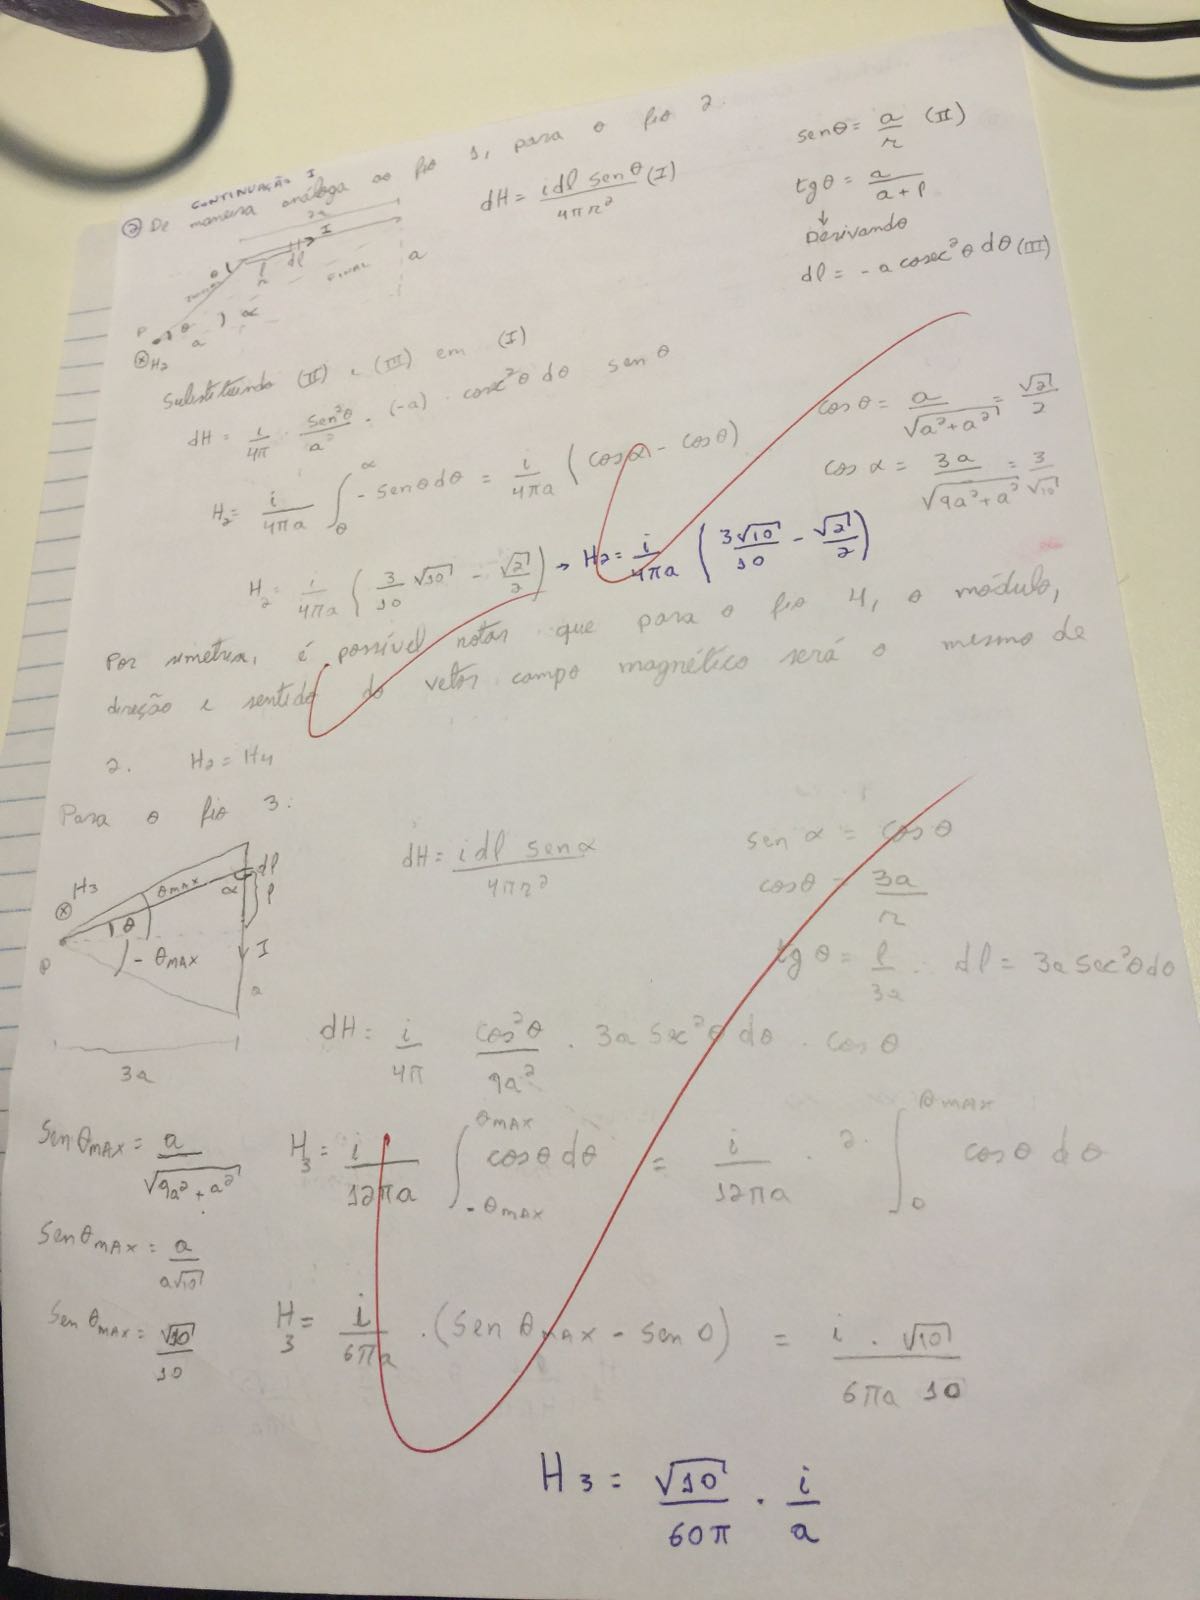 CONTINUAÇÃO I
② De maneira análoga ao fio 1, para o fio 2.
2a
I
l dl
r
FINAL
a
θ
P θ a ) α
⊗H₂
dH = i dl senθ / 4πr² (I)
senθ = a / r (II)
tgθ = a / a + l
↓
Derivando
dl = - a cosec²θ dθ (III)
Substituindo (II) e (III) em (I)
dH = i / 4π · sen²θ / a² · (-a) · cosec²θ dθ senθ
H₂ = i / 4πa ∫θ^α - senθdθ = i / 4πa (cosα - cosθ)
cosθ = a / √(a²+a²) = √2 / 2
cos α = 3a / √(9a²+a²) = 3 / √10
H₂ = i / 4πa (3/10 √10 - √2/2) → H₂ = i / 4πa (3√10/10 - √2/2)
Por simetria, é possível notar que para o fio 4, o módulo,
direção e sentido do vetor campo magnético será o mesmo de
2. H₂ = H₄
Para o fio 3:
H₃
⊗
θMAX
α
dl
l
θ
P
- θMAX
I
a
3a
dH = i dl senα / 4πr²
sen α = cos θ
cosθ = 3a / r
tg θ = l / 3a · dl = 3a sec²θdθ
dH = i / 4π cos²θ / 9a² · 3a sec²θ dθ · cos θ
Sen θMAX = a / √(9a²+a²)
H₃ = i / 12πa ∫-θMAX^θMAX cosθ dθ = i / 12πa · 2 · ∫0^θMAX cosθ dθ
Sen θMAX = a / a√10
Sen θMAX = √10 / 10
H₃ = i / 6πa · (Sen θMAX - sen 0) = i · √10 / 6πa 10
H₃ = √10 / 60π · i / a